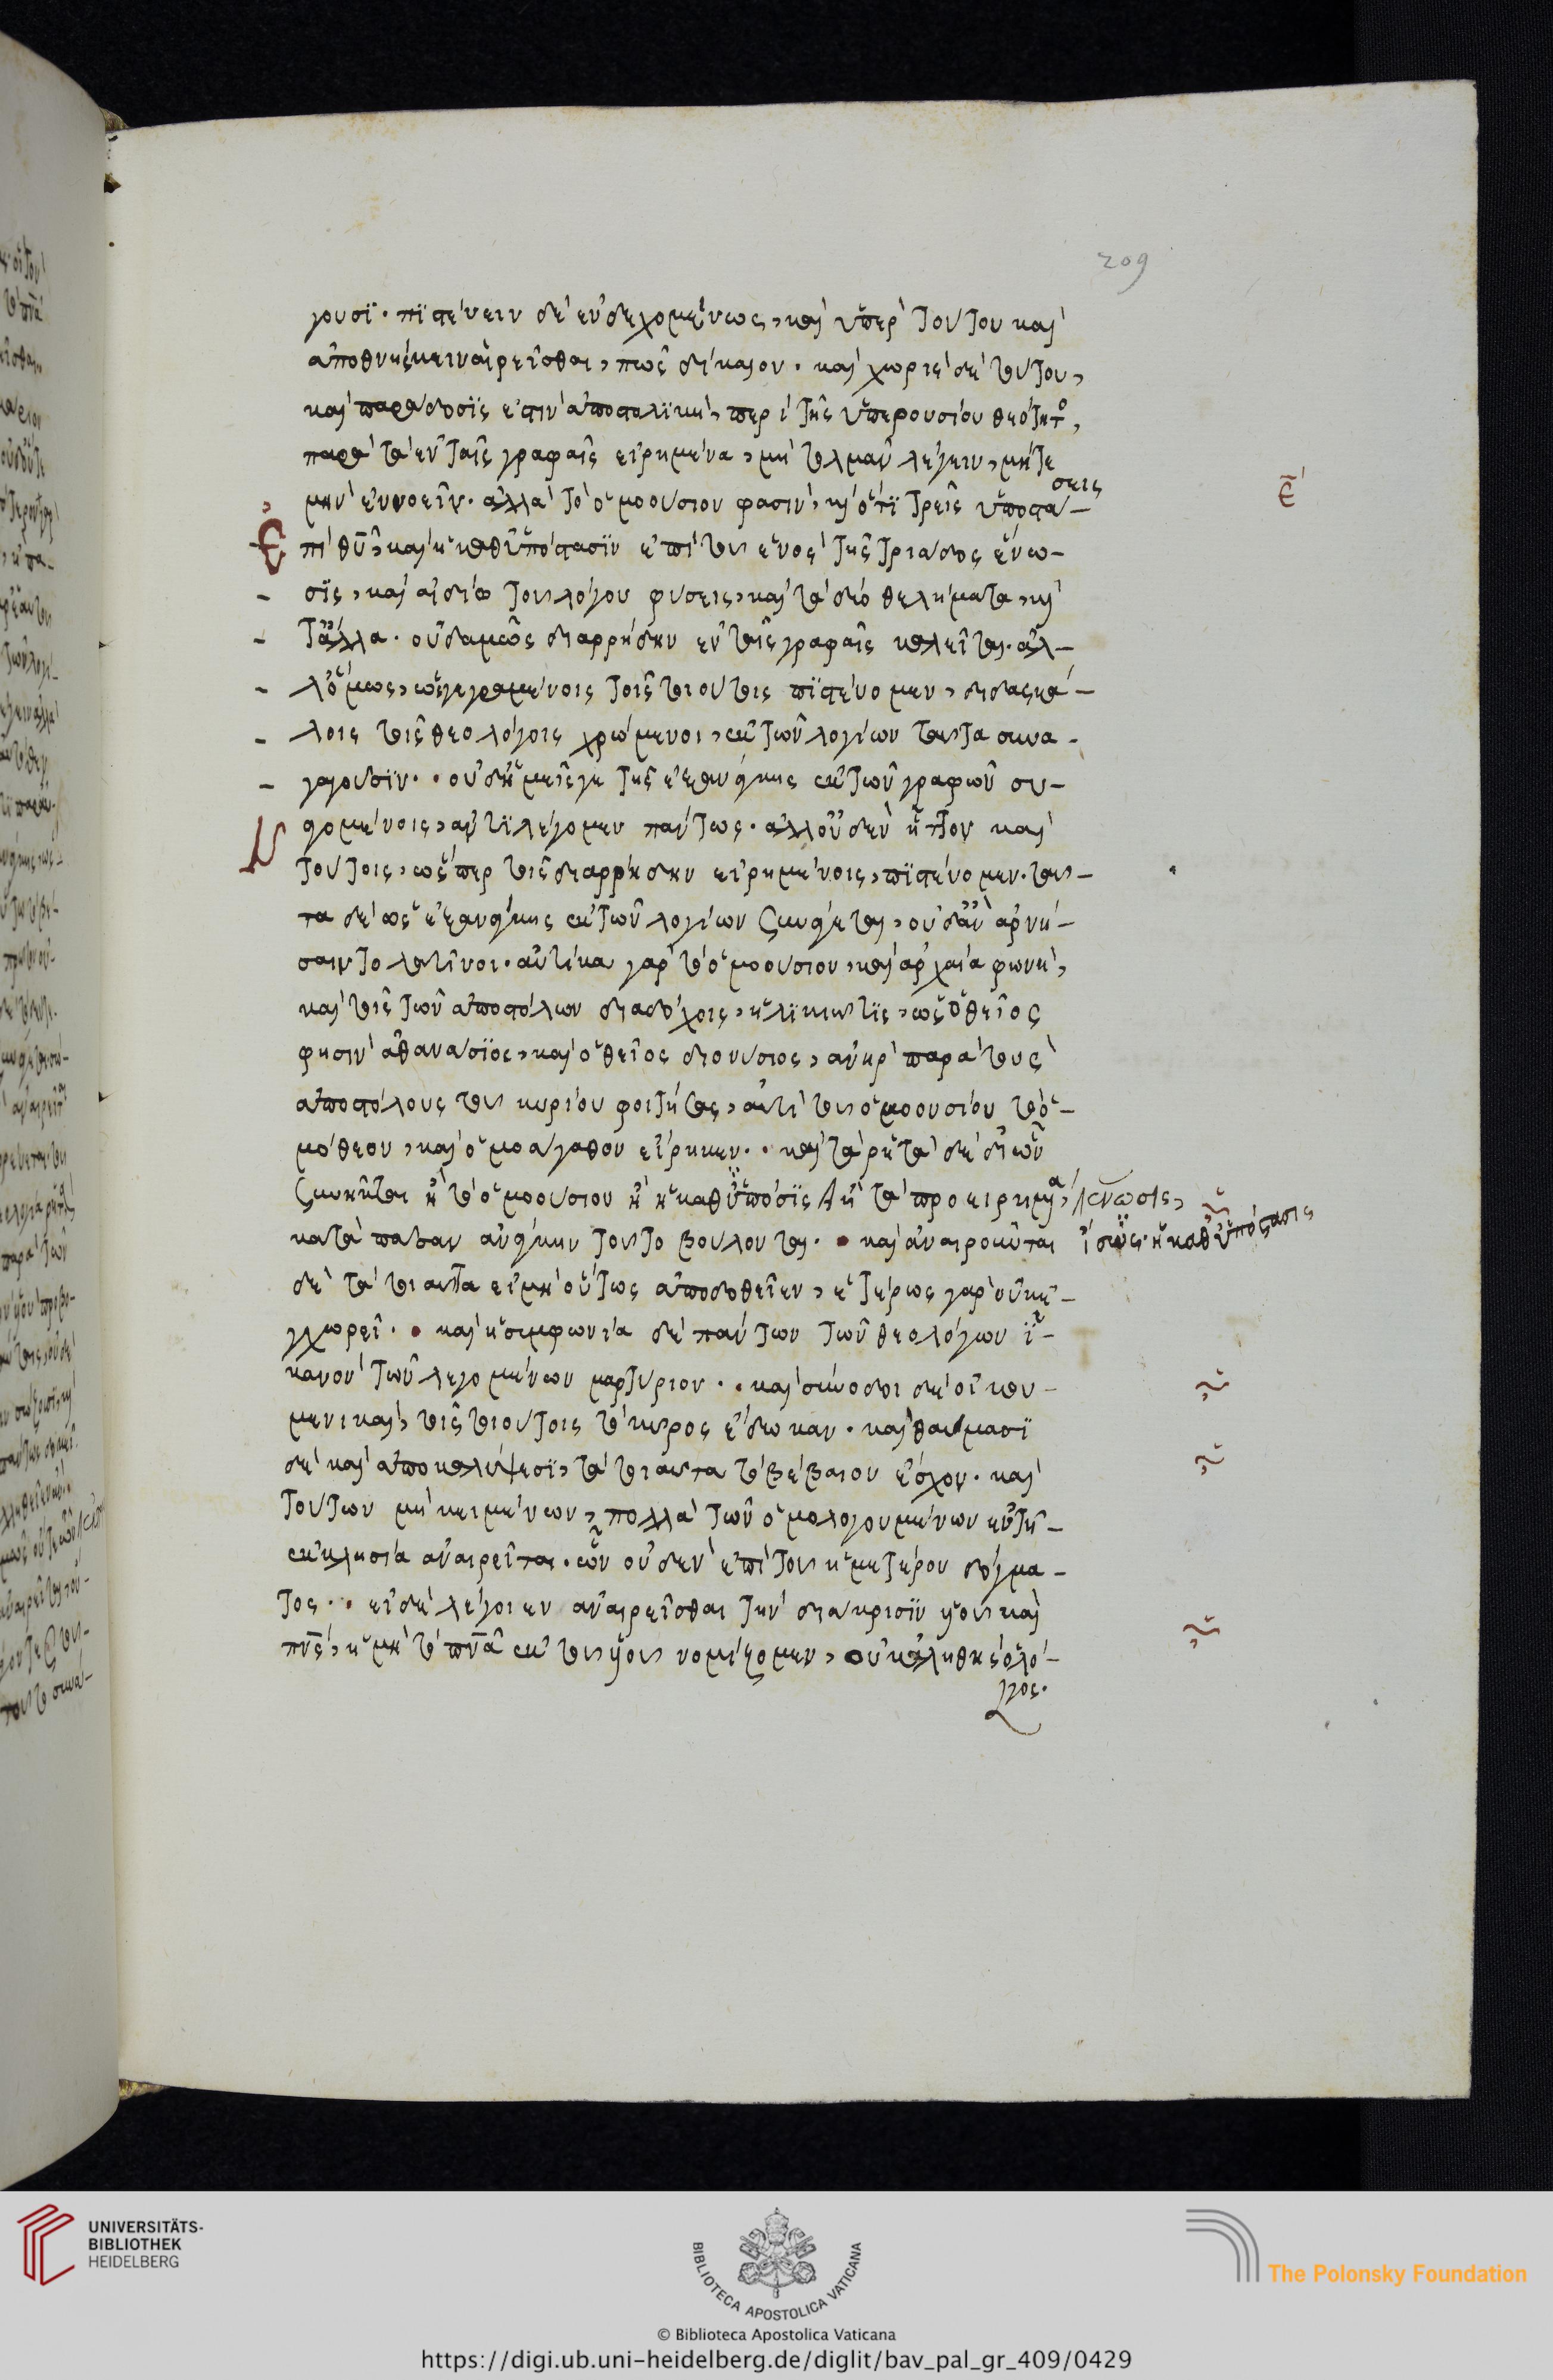 209
γουσϊ. πϊστεύειν δὲ ἐνδεχομένως, καὶ ὑπὲρ τούτου καὶ
ἀποθνήσκειν αἱρεῖσθαι, πῶς δίκαιον. καὶ χωρὶς δὲ τούτου,
καὶ παράδοσϊς ἐστὶν ἀποστολϊκὴ, περὶ τῆς ὑπερουσίου θεότητο,
παρὰ τὰ ἐν ταῖς γραφαῖς εἰρημένα, μὴ τολμᾶν λέγειν, μήτε
μὴν ἐννοεῖν. ἀλλὰ τὸ ὁμοούσιον φασὶν, καὶ ὅτϊ τρεῖς ὑποστά-
σεις
ε̄
ἐπὶ θῦ, καὶ ἡ καθϋπόστασϊν ἐπὶ τοῦ ἑνὸς τῆς τριάδος ἕνω-
σϊς, καὶ αἱ δύο τοῦ λόγου φύσεις, καὶ τὰ δύο θελήματα, καὶ
τἄλλα. οὐδαμῶς διαρρήδην ἐν ταῖς γραφαῖς καλεῖται. ἀλ-
λ' ὅμως, ὡς γεγραμένοις τοῖς τοιούτοις πϊστεύομεν, διδασκά-
λοις τοῖς θεολόγοις χρώμενοι, ἐκ τῶν λογίων ταῦτα συνα-
γαγοῦσϊν. οὐδ' ἡμεῖς γε τῆς ἐξ ἀνάγκης ἐκ τῶν γραφῶν συ-
ναγομένοις, ἀντϊλέγομεν πάντως. ἀλλ' οὐδὲν ἧττον καὶ
τούτοις, ὥσπερ τοῖς διαρρήδην εἰρημένοις, πϊστεύομεν. ταῦ-
τα δὲ ὡς ἐξ ἀνάγκης ἐκ τῶν λογίων συνάγεται, οὐδ' ἂν ἀρνή-
σαιντο λατῖνοι. αὐτίκα γὰρ τὸ ὁμοούσιον, καὶ ἀρχαία φωνὴ,
καὶ τοῖς τῶν ἀποστόλων διαδόχοις, ἡλϊκιῶτϊς, ὡς ὁ θεῖος
φησὶν ἀθανάσϊος, καὶ ὁ θεῖος διονύσιος, ἀνὴρ παρὰ τοὺς
ἀποστόλους τοῦ κυρίου φοιτήσας, ἀντὶ τοῦ ὁμοουσίου τὸ ὁ-
μόθεον, καὶ ὁμοάγαθον εἴρηκεν. καὶ τὰ ῥητὰ δὲ δι' ὧν
συνῆκται ἢ τὸ ὁμοούσιον ἢ ἡ καθϋπόσϊς ἢ τὰ προειρημένα,
ἕνωσις,
κατὰ πᾶσαν ἀνάγκην τοῦτο βούλονται. καὶ ἀναιροῦνται
ἴσως. ἡ καθ' ὑπόστασις
δὲ τὰ τοιαῦτα εἰ μὴ οὕτως ἀποδοθεῖεν, ἑτέρως γὰρ οὐκ ἐ-
γχωρεῖ. καὶ ἡ συμφωνία δὲ πάντων τῶν θεολόγων ἱ-
κανὸν τῶν λεγομένων μαρτύριον. καὶ σύνοδοι δὲ οἰκου-
μενικαὶ, τοῖς τοιούτοις τὸ κῦρος ἔδωκαν. καὶ θαύμασϊ
δὲ καὶ ἀποκαλύψεσϊ, τὰ τοιαῦτα τὸ βέβαιον ἔσχον. καὶ
τούτων μὴ κειμένων, πολλὰ τῶν ὁμολογουμένων ἐν τῆ
ἐκκλησία ἀναιρεῖται. ὧν οὐδὲν ἐπὶ τοῦ ἡμετέρου δόγμα-
τος. εἰ δὲ λέγοιεν ἀναιρεῖσθαι τὴν διάκρισϊν υἱοῦ καὶ
πνς, ἡ μὴ τὸ πνα ἐκ τοῦ υἱοῦ νομίζομεν, οὐκ ἀληθὴς ὁ λό-
γος.
UNIVERSITÄTS-
BIBLIOTHEK
HEIDELBERG
BIBLIOTECA APOSTOLICA VATICANA
The Polonsky Foundation
© Biblioteca Apostolica Vaticana
https://digi.ub.uni-heidelberg.de/diglit/bav_pal_gr_409/0429